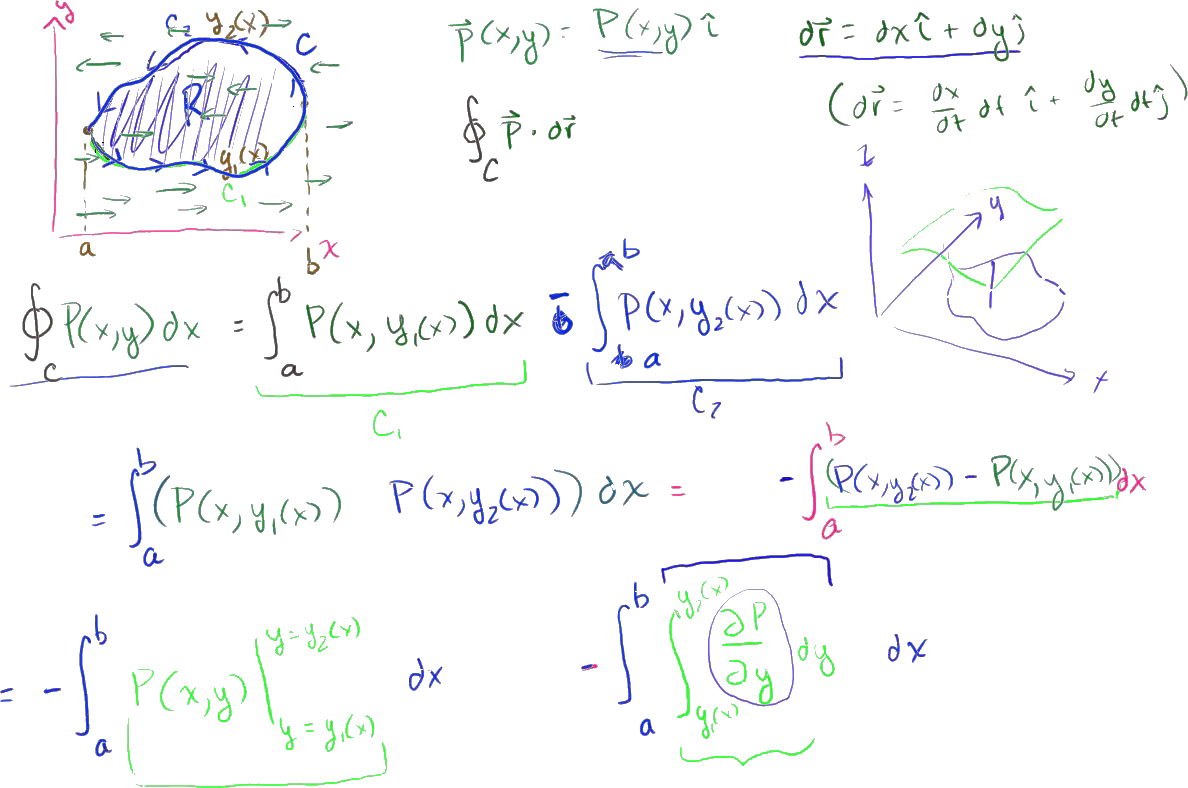 y
C₂ y₂(x) C
R
y₁(x)
C₁
a b x
P⃗(x,y) = P(x,y) î
dr⃗ = dx î + dy ĵ
(dr⃗ = dx/dt dt î + dy/dt dt ĵ)
∮_C P⃗ · dr⃗
z y x
∮_C P(x,y) dx = ∫_a^b P(x, y₁(x)) dx - ∫_a^b P(x, y₂(x)) dx
C₁ C₂
= ∫_a^b (P(x, y₁(x)) P(x, y₂(x))) dx = - ∫_a^b (P(x, y₂(x)) - P(x, y₁(x))) dx
= - ∫_a^b P(x,y) |_{y = y₁(x)}^{y = y₂(x)} dx - ∫_a^b ∫_{y₁(x)}^{y₂(x)} ∂P/∂y dy dx